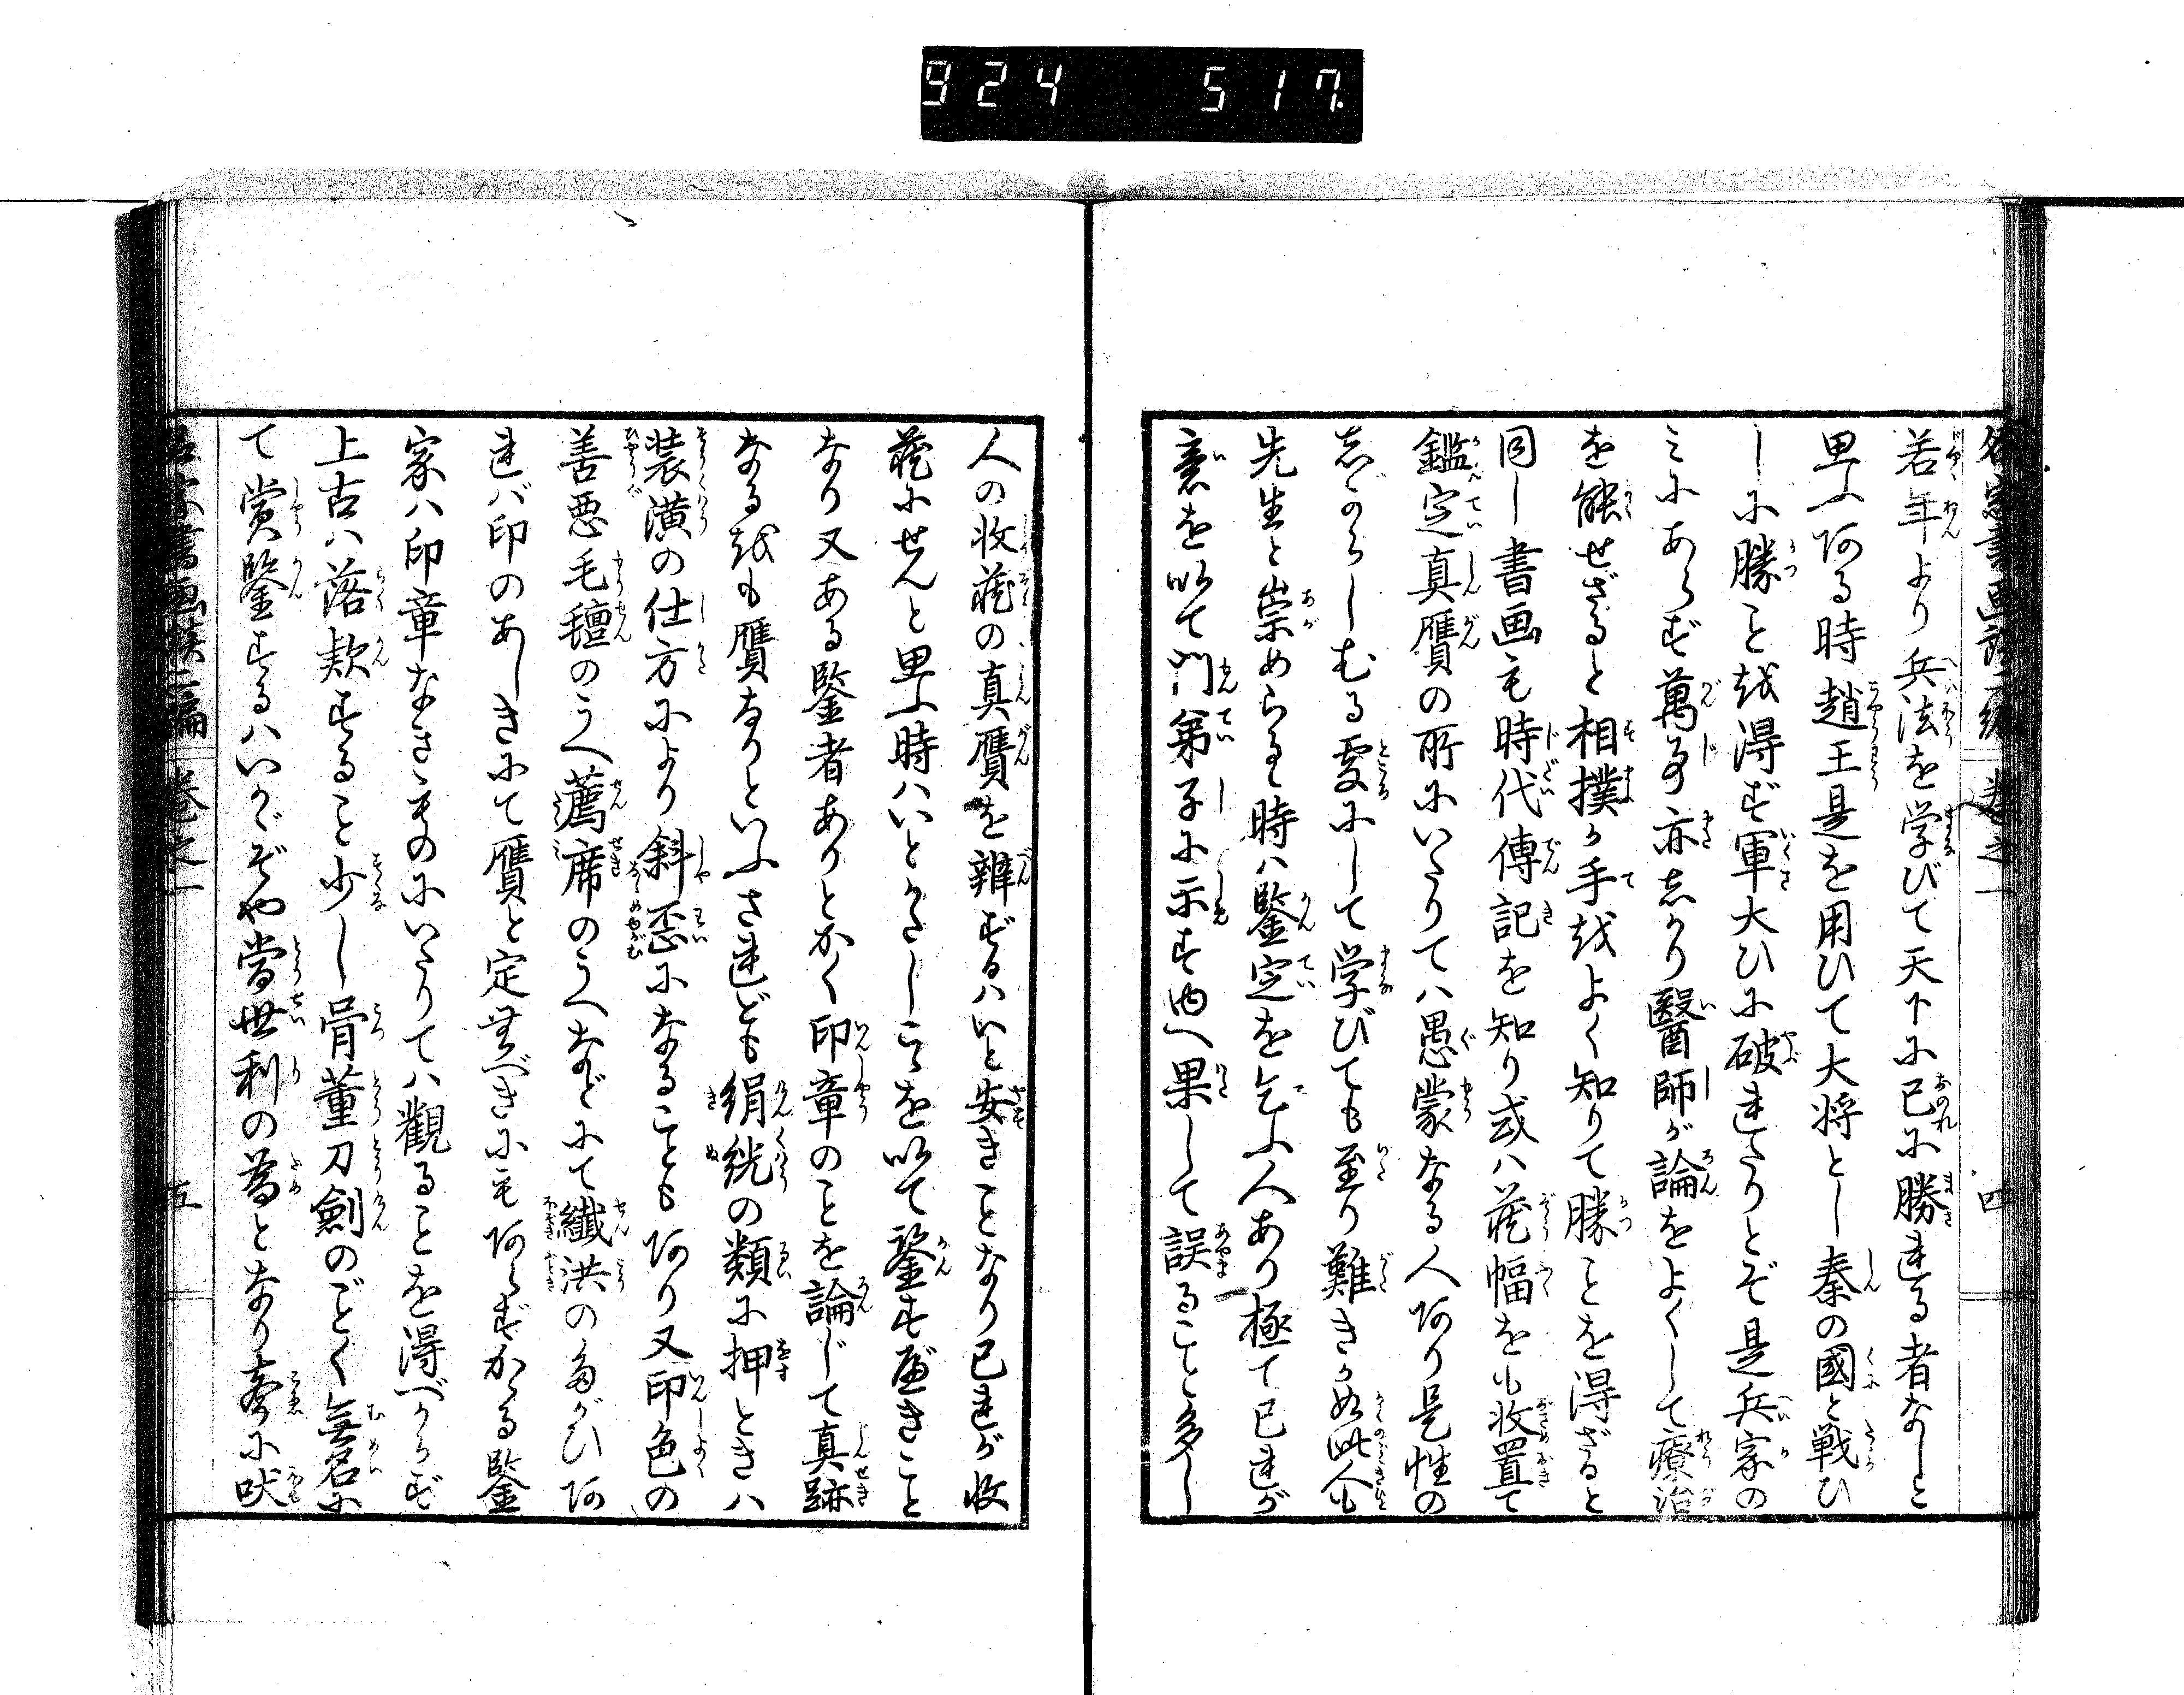 924 517
若年より兵法を学びて天下に己に勝れる者なしと
思ふ阿る時趙王是を用ひて大将とし秦の國と戦ひ
しに勝こと越得ず軍大ひに破れたりとぞ是兵家の
みにあらず萬事亦志かり醫師が論をよくして療治
を能せざると相撲が手越よく知りて勝ことを得ざると
同し書画も時代傳記を知り或ハ蔵幅を収置て
鑑定真贋の所にいたりてハ愚蒙なる人阿り是性の
志からしむる処にして学びても至り難きか如此人も
先生と崇めらるゝ時ハ鑒定を乞ふ人あり極て己れが
意を以て門第子に示す由へ果して誤ること多し
人の収蔵の真贋を辨ずるハいと安きことなり己れが収
蔵にせんと思ふ時ハいとかたしこゝを以て鑒すべきこと
なり又ある鑒者ありとかく印章のことを論じて真跡
なる越も贋なりといふされども絹絖の類に押ときハ
装潢の仕方により斜歪になることも阿り又印色の
善悪毛氊のうへ薦席のうへなどにて纖洪のたがひ阿
れバ印のあしきにて贋と定むべきにも阿らずかゝる鑒
家ハ印章なきものにいたりてハ觀ることを得べからず
上古ハ落款すること少し骨董刀劍のごとく無名に
て賞鑒するハいかゞぞや當世利の為となり声に吠